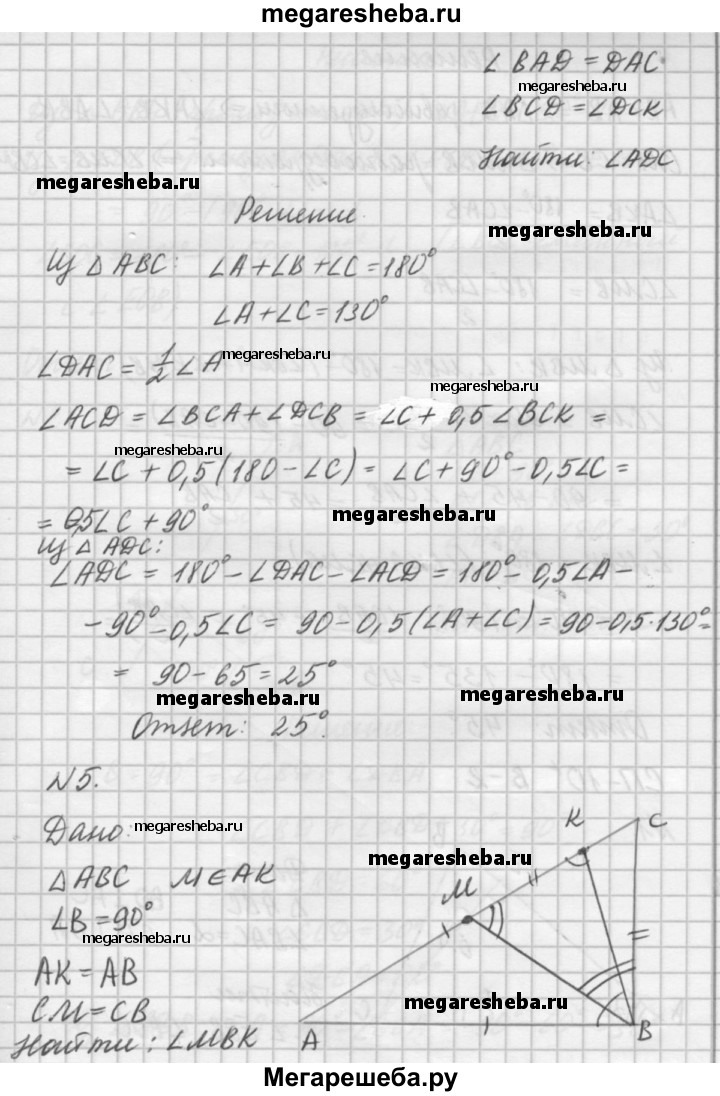 megaresheba.ru
∠BAD = DAC
megaresheba.ru
∠BCD = ∠DCK
Найти: ∠ADC
megaresheba.ru
Решение
megaresheba.ru
Из △ABC: ∠A+∠B+∠C=180°
∠A+∠C=130°
∠DAC = 1/2 ∠A
megaresheba.ru
megaresheba.ru
∠ACD = ∠BCA+∠DCB = ∠C+0,5∠BCK =
megaresheba.ru
= ∠C+0,5(180-∠C) = ∠C+90°-0,5∠C =
= 0,5∠C+90°
megaresheba.ru
Из △ADC:
∠ADC = 180°-∠DAC-∠ACD = 180°-0,5∠A-
-90°-0,5∠C = 90-0,5(∠A+∠C) = 90-0,5·130°=
= 90-65=25°
megaresheba.ru
megaresheba.ru
Ответ: 25°.
N5.
Дано:
megaresheba.ru
megaresheba.ru
△ABC M∈AK
∠B=90°
megaresheba.ru
AK=AB
CM=CB
Найти: ∠MBK
K
C
M
megaresheba.ru
A
B
Мегарешеба.ру